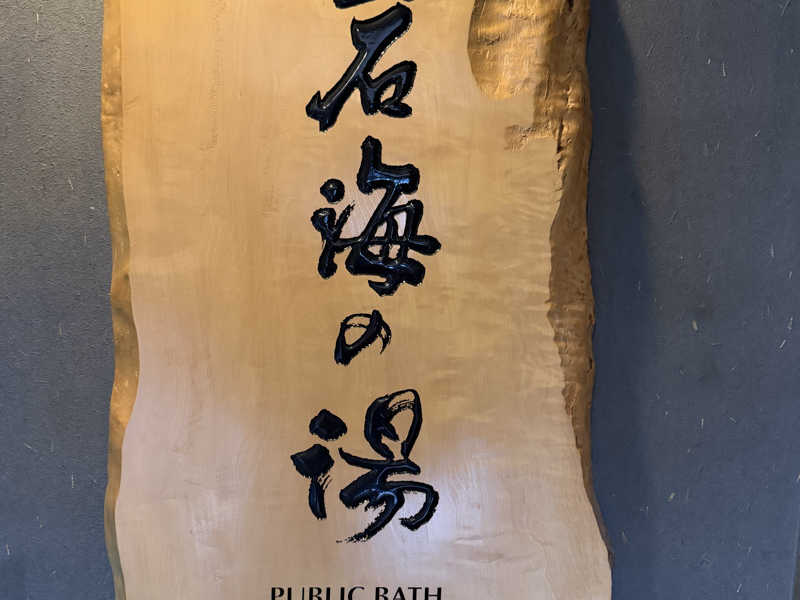 石海の湯
PUBLIC BATH